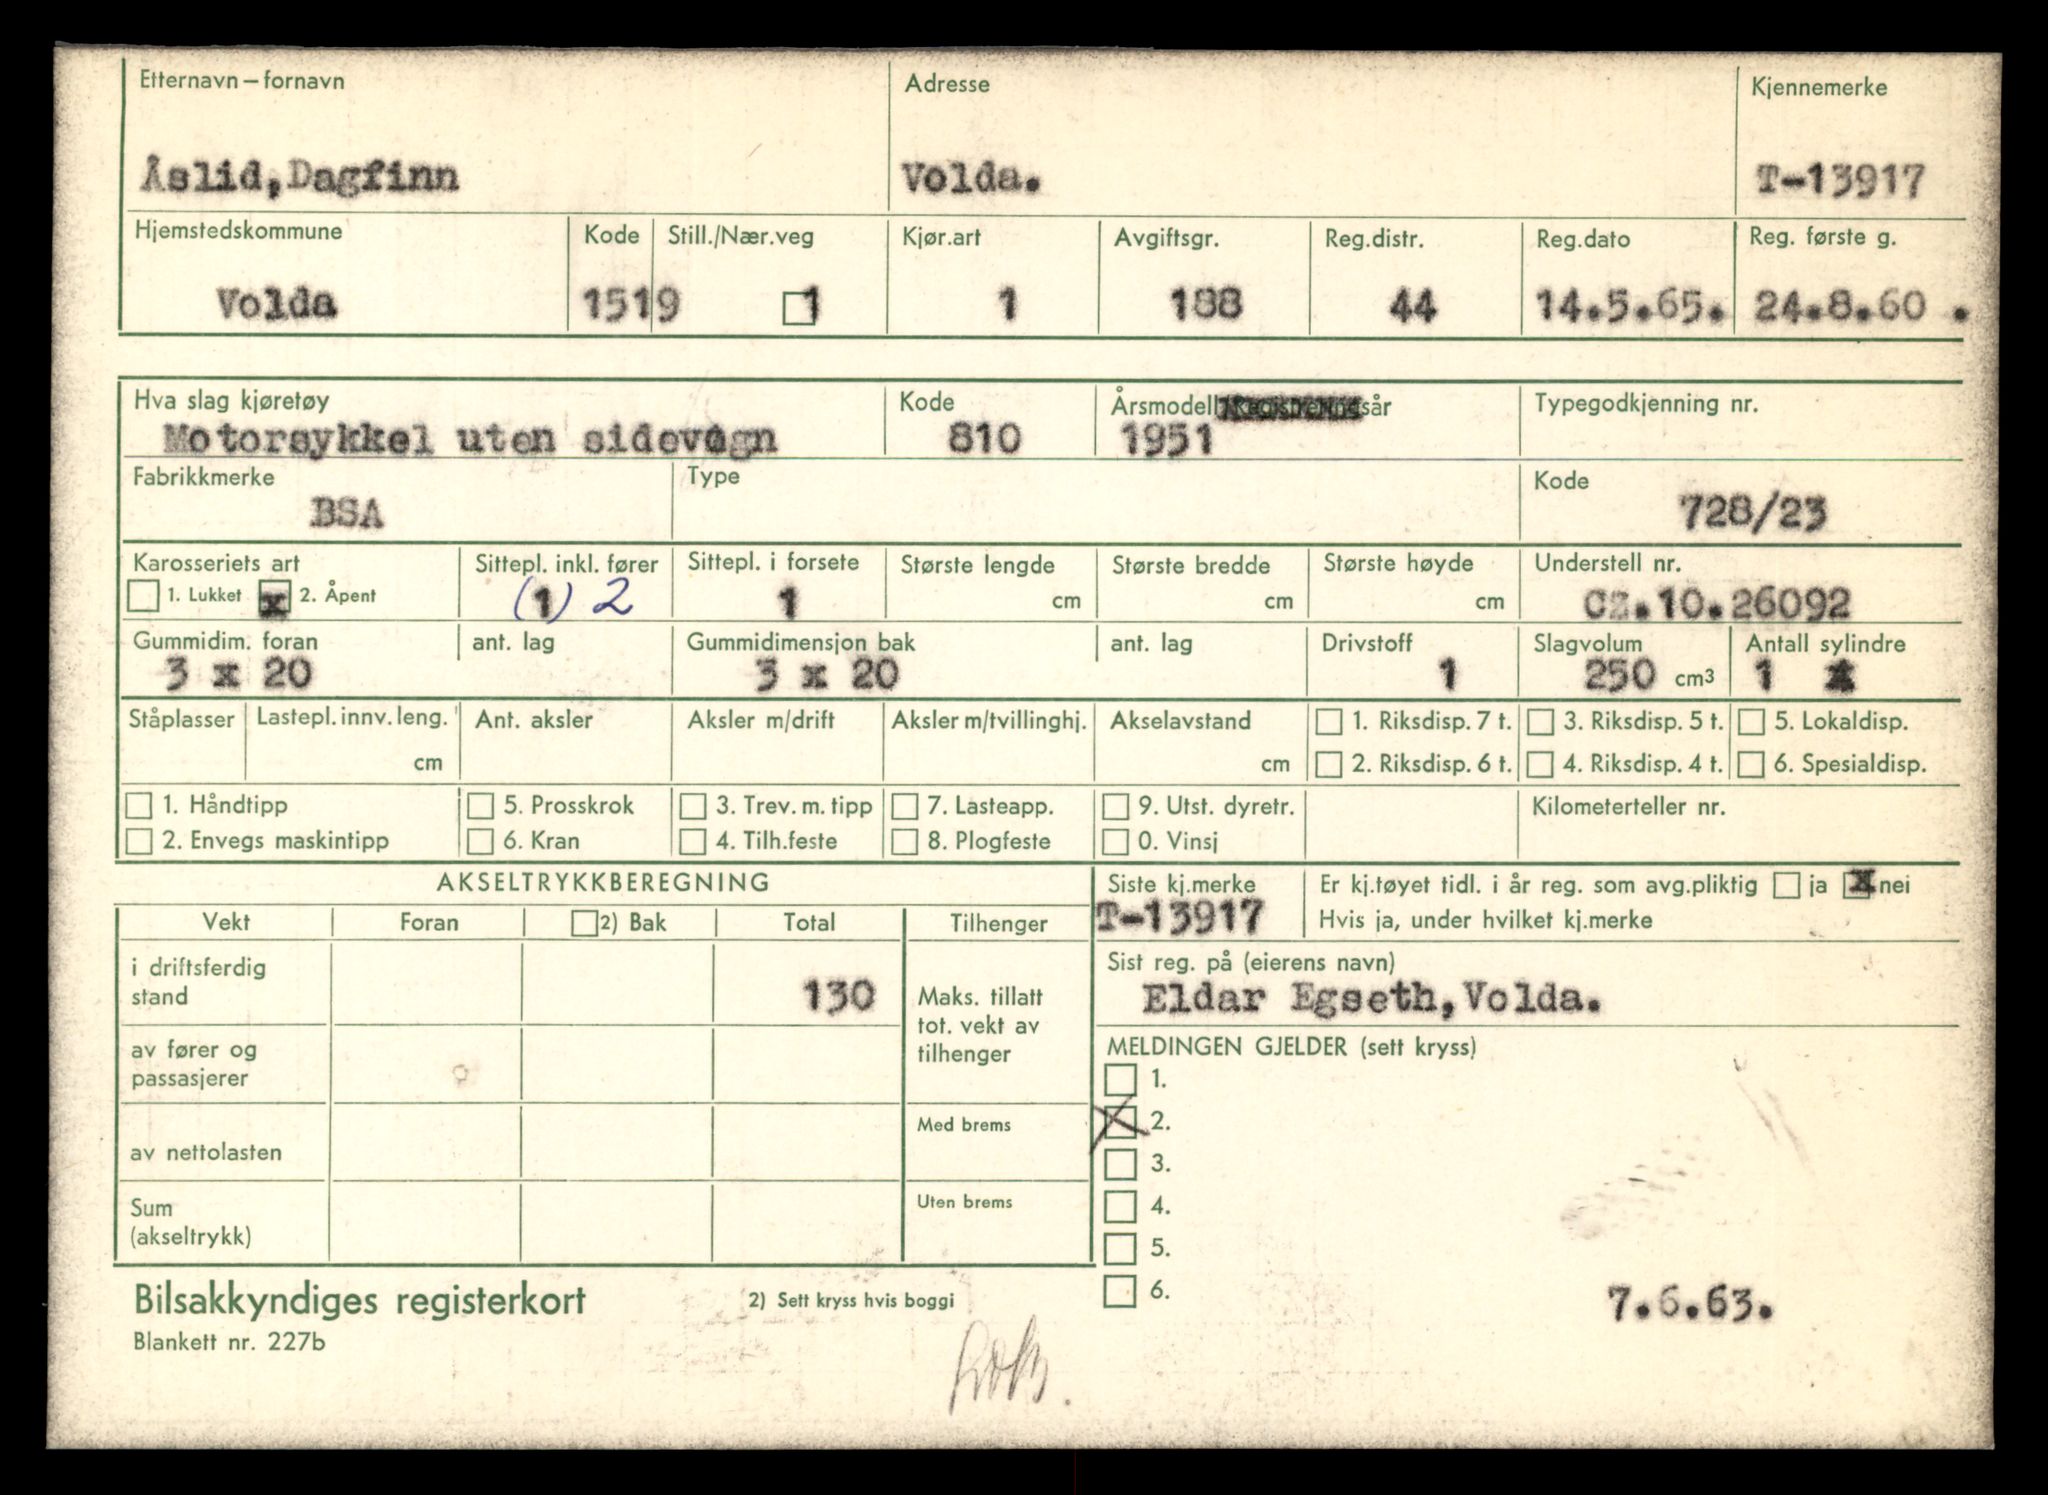 Etternavn – fornavn Adresse Kjennemerke
Åslid,Dagfinn Volda. T-13917
Hjemstedskommune Kode Still./Nær.veg Kjør.art Avgiftsgr. Reg.distr. Reg.dato Reg. første g.
Volda 1519 1 1 188 44 14.5.65. 24.8.60 .
Hva slag kjøretøy Kode Årsmodell/Registreringsår Typegodkjenning nr.
Motorsykkel uten sidevogn 810 1951
Fabrikkmerke Type Kode
BSA 728/23
Karosseriets art Sittepl. inkl. fører Sittepl. i forsete Største lengde Største bredde Største høyde Understell nr.
1. Lukket x 2. Åpent (1) 2 1 cm cm cm CZ.10.26092
Gummidim. foran ant. lag Gummidimensjon bak ant. lag Drivstoff Slagvolum Antall sylindre
3 x 20 3 x 20 1 250 cm3 1
Ståplasser Lastepl. innv. leng. Ant. aksler Aksler m/drift Aksler m/tvillinghj. Akselavstand 1. Riksdisp. 7 t. 3. Riksdisp. 5 t. 5. Lokaldisp.
cm cm 2. Riksdisp. 6 t. 4. Riksdisp. 4 t. 6. Spesialdisp.
1. Håndtipp 5. Prosskrok 3. Trev. m. tipp 7. Lasteapp. 9. Utst. dyretr. Kilometerteller nr.
2. Envegs maskintipp 6. Kran 4. Tilh.feste 8. Plogfeste 0. Vinsj
AKSELTRYKKBEREGNING Siste kj.merke Er kj.tøyet tidl. i år reg. som avg.pliktig ja x nei
Vekt Foran 2) Bak Total Tilhenger T-13917 Hvis ja, under hvilket kj.merke
i driftsferdig Sist reg. på (eierens navn)
stand 130 Maks. tillatt Eldar Egseth,Volda.
tot. vekt av
av fører og tilhenger MELDINGEN GJELDER (sett kryss)
passasjerer 1.
Med brems X 2.
av nettolasten 3.
Sum Uten brems 4.
(akseltrykk) 5.
Bilsakkyndiges registerkort 2) Sett kryss hvis boggi 6. 7.6.63.
Blankett nr. 227b